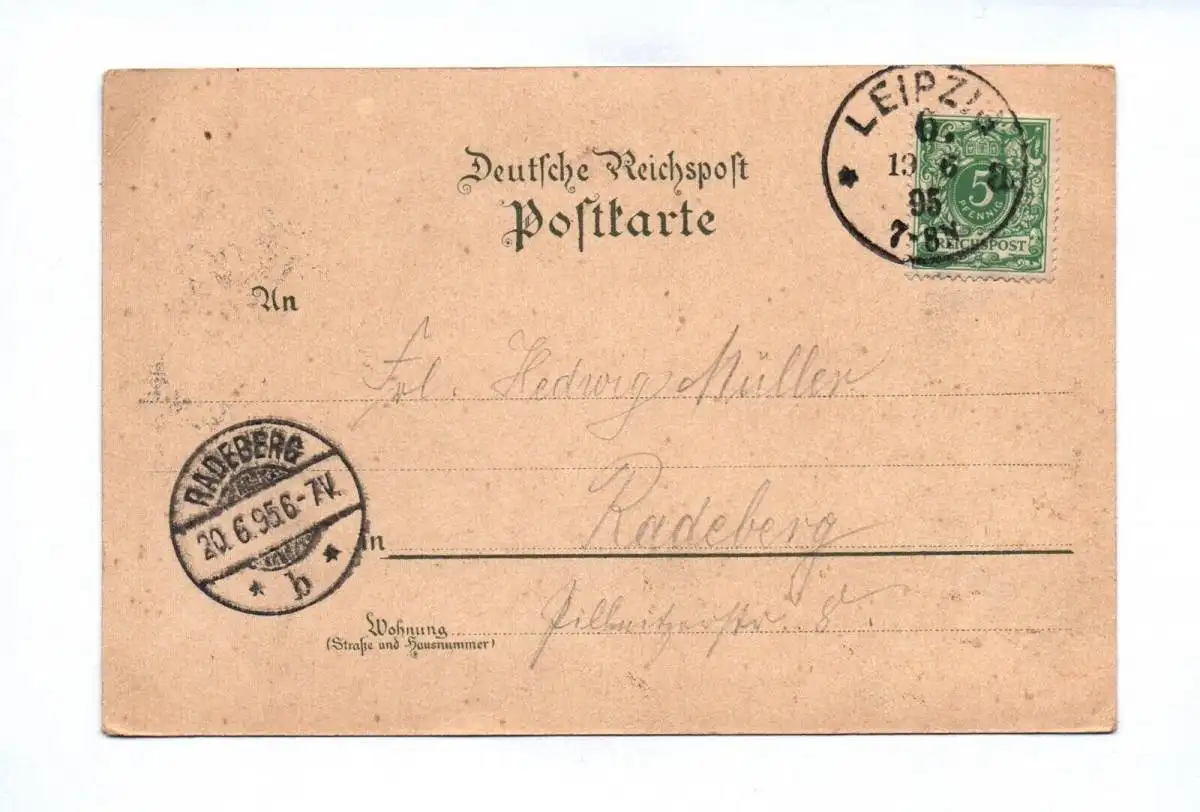 LEIPZIG
6.
19 6
95
7-8N
a.
5
PFENNIG
REICHSPOST
Deutsche Reichspost
Postkarte
An
Frl. Hedwig Müller
RADEBERG
20.6.95.6-7V.
* b *
in
Radeberg
Wohnung
(Straße und Hausnummer)
Pillnitzerstr. 8